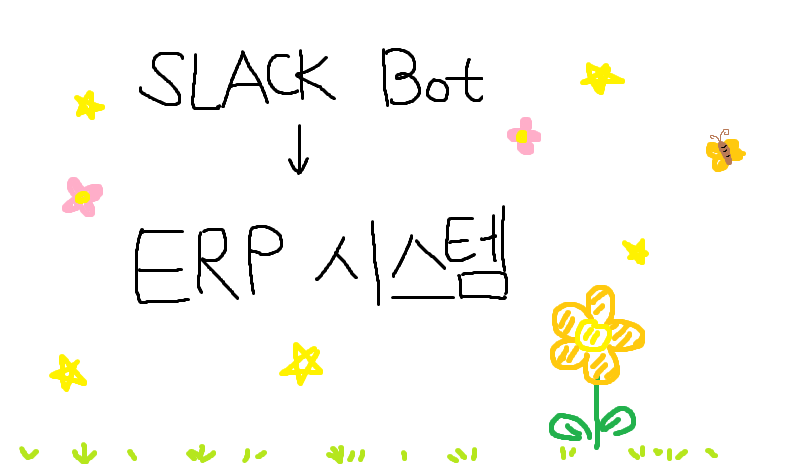 SLACK Bot
↓
ERP 시스템